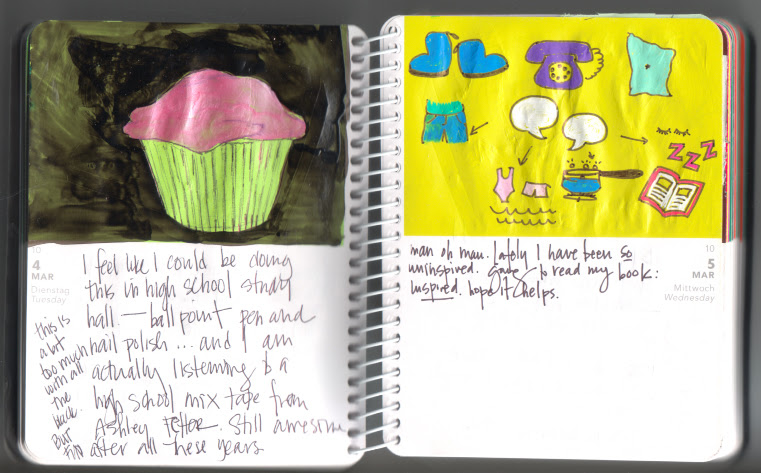 10
4
MAR
Dienstag
Tuesday
I feel like I could be doing
this in high school study
hall. — ball point pen and
nail polish ... and I am
actually listening to a
high school mix tape from
Ashley. Still awesome
after all these years
this is
a bit
too much
with all
the
black.
But
zzz
man oh man. lately I have been so
uninspired. to read my book:
inspired. hope it helps.
10
5
MAR
Mittwoch
Wednesday